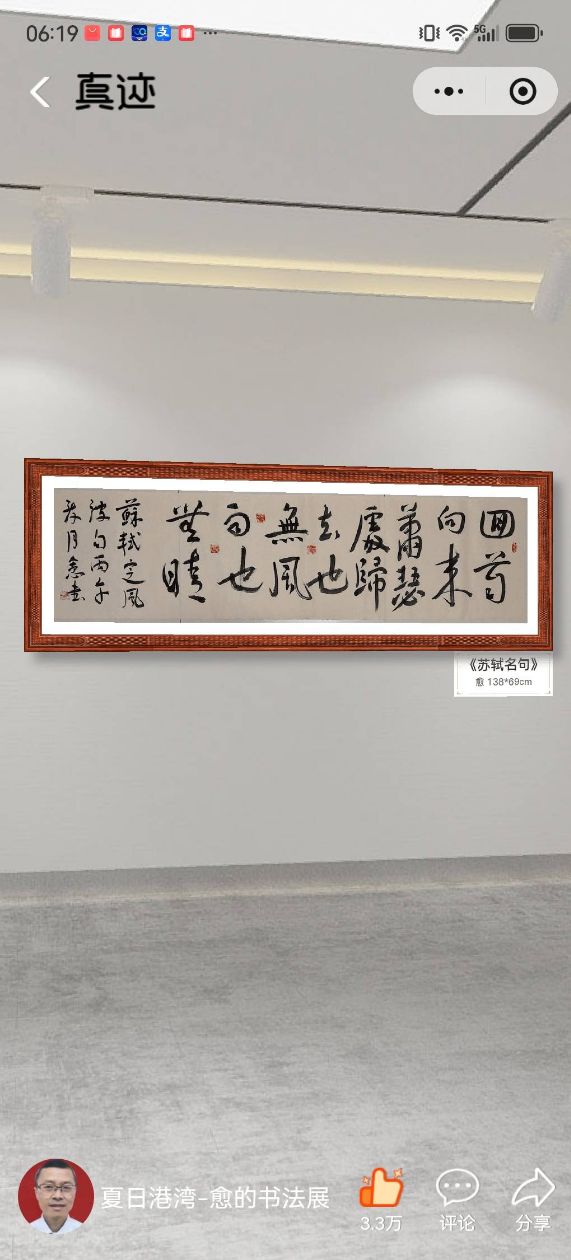 06:19
5G
真迹
回首
向来
蕭瑟
處歸
去也
無風
雨也
無晴
蘇軾定風
波句丙午
春月愈書
《苏轼名句》
愈 138*69cm
夏日港湾-愈的书法展
3.3万
评论
分享